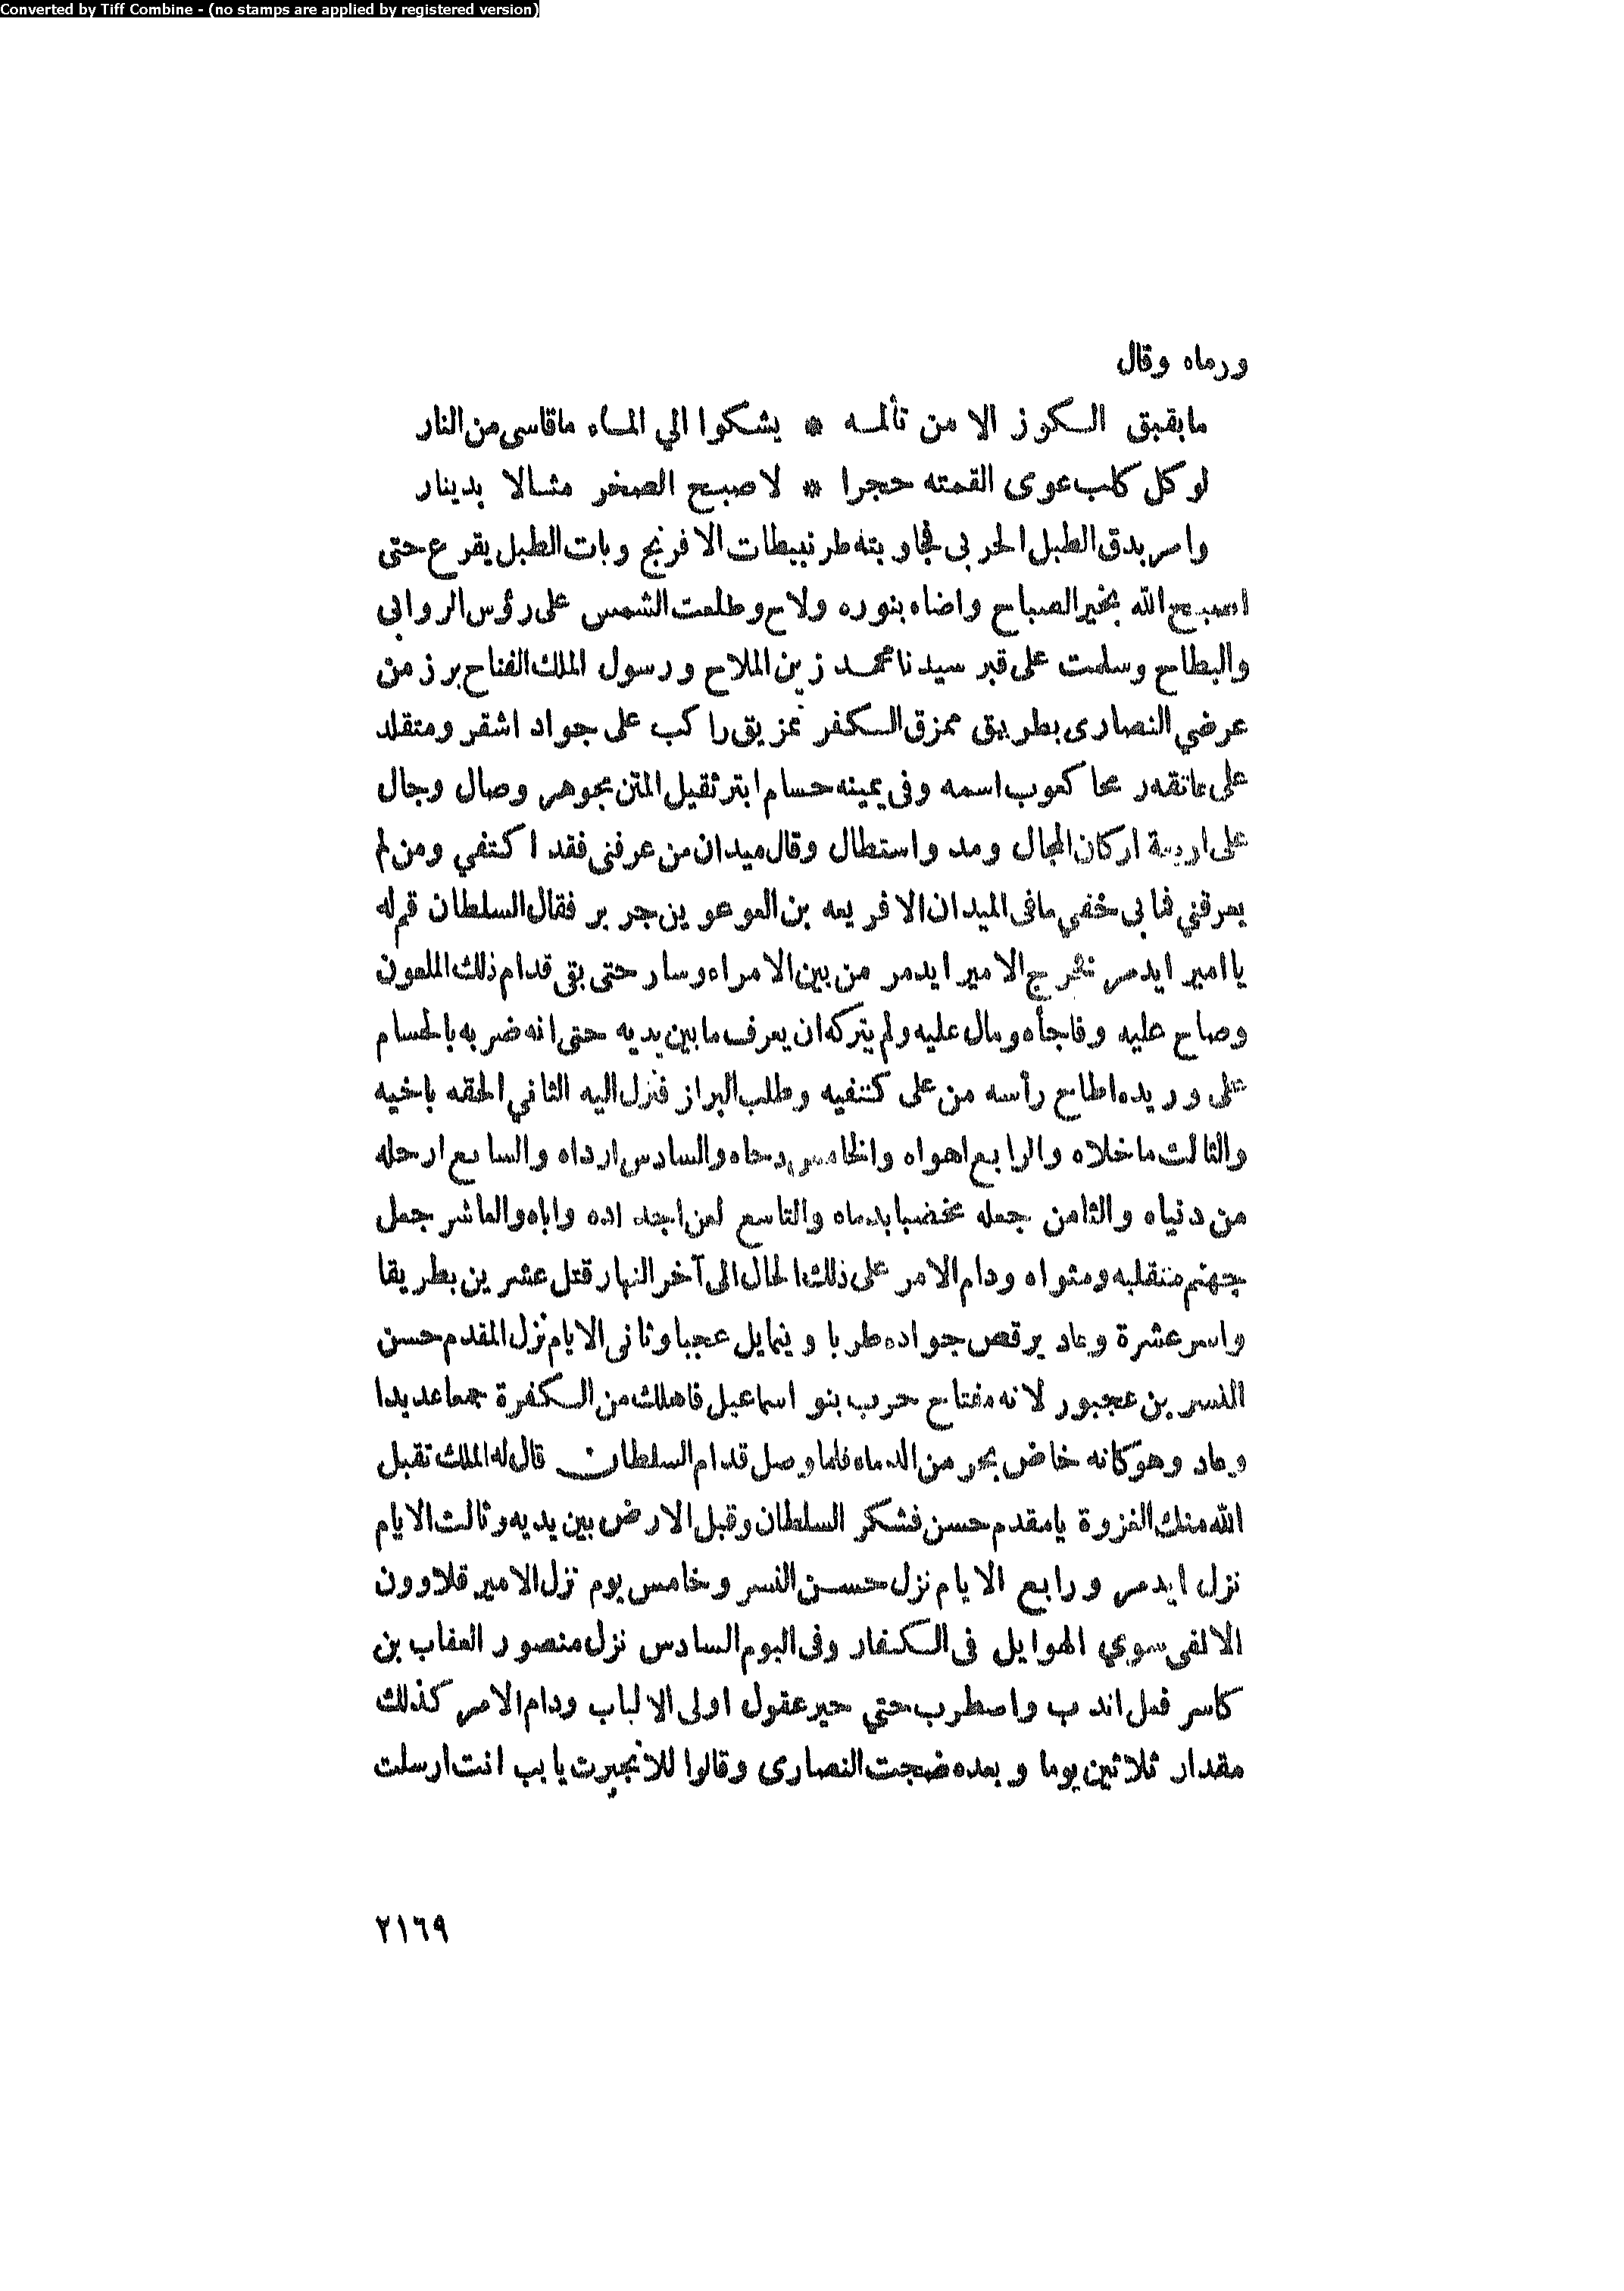 Converted by Tiff Combine - (no stamps are applied by registered version)
ورماه وقال
مابقبق الكوز الا من تألمه * يشكوا الي الماء ماقاسى من النار
لو كل كلب عوى القمته حجرا * لاصبح الصخر مثالا بدينار
وامر بدق الطبل الحربى فجاوبته طرنبيطات الافرنج وبات الطبل يقرع حتى
اصبح الله بخير الصباح واضاه بنوره ولاح وطلعت الشمس على رؤس الروابى
والبطاح وسلمت على قبر سيدنا محمد زين الملاح ورسول الملك الفتاح برز من
عرضي النصارى بطريق ممزق الكفر تمزيق راكب على جواد اشقر ومتقلد
على عاتقه رمحا كعوب اسمه وفى يمينه حسام ابتر ثقيل المتن مجوهر وصال وجال
على اربعة اركان المجال ومد واستطال وقال ميدان من عرفنى فقد اكتفي ومن لم
يعرفني فما بى خفي مافى الميدان الا فريعه بن العوعوين جربر فقال السلطان قم له
يا امير ايدمر فخرج الامير ايدمر من بين الامراه وسار حتى بقى قدام ذلك الملعون
وصاح عليه وفاجأه ومال عليه ولم يتركه ان يعرف مابين يديه حتى انه ضربه بالحسام
على وريده اطاح رأسه من على كتفيه وطلب البراز فنزل اليه الثاني الحقه باخيه
والثالث ماخلاه والرابع اهواه والخامس دحاه والسادس ارداه والسابع ارحله
من دنياه والثامن جعله مخضبا بدماه والتاسع لعن اجداده واباه والعاشر جعل
جهنم منقلبه ومثواه ودام الامر على ذلك الحال الى آخر النهار قتل عشرين بطريقا
واسر عشرة وعاد يرقص جواده طربا ويتمايل عجبا وثانى الايام نزل المقدم حسن
النسر بن عجبور لانه مفتاح حرب بنو اسماعيل فاهلك من الكفرة جمعا عديدا
وعاد وهو كانه خاض بحر من الدماه فلما وصل قدام السلطان قال له الملك تقبل
الله منك الغزوة يامقدم حسن فشكر السلطان وقبل الارض بين يديه وثالث الايام
نزل ايدمر ورابع الايام نزل حسن النسر وخامس يوم نزل الامير قلاوون
الالفى سوي الهوايل فى الكفار وفى اليوم السادس نزل منصور العقاب بن
كاسر فعل اندب واصطرب حتي حير عقول اولى الالباب ودام الامر كذلك
مقدار ثلاثين يوما وبعده ضجت النصارى وقالوا للانجبرت يابب انت ارسلت
٢١٦٩